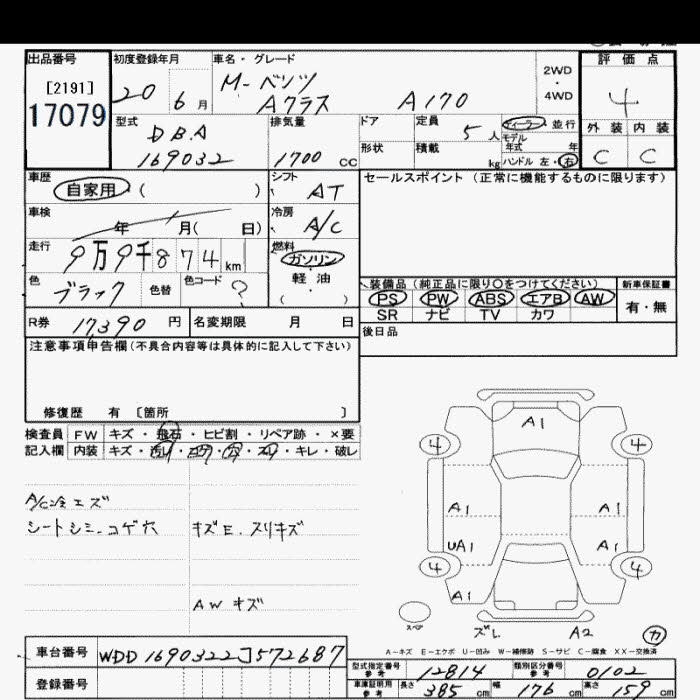 出品番号
[2191]
17079
初度登録年月
20 6月
車名・グレード
M-ベンツ
Aクラス A170
2WD
・
4WD
評価点
4
外装 内装
C C
型式
DBA
169032
排気量
1700 CC
ドア
形状
定員
5人
積載
kg
ディーラー・並行
モデル
年式 年
ハンドル 左・右
車歴
自家用 ( )
シフト
AT
車検
年 月( 日)
冷房
A/C
走行
9万9千874km
燃料
ガソリン
・
軽油
( )
色
ブラック
色替
色コード
?
R券 17,390円
名変期限 月 日
セールスポイント(正常に機能するものに限ります)
装備品(純正品に限り○をつけてください)
PS PW ABS エアB AW
SR ナビ TV カワ
新車保証書
有・無
後日品
注意事項申告欄(不具合内容等は具体的に記入して下さい)
修復歴 有 [箇所 ]
検査員 FW キズ・飛石・ヒビ割・リペア跡・×要
記入欄 内装 キズ・汚レ・コゲ・穴・スレ・キレ・破レ
A/C冷エズ
シートシミ、コゲ穴
キズE、スリキズ
AWキズ
A1
4 4
A1 A1
UA1 A1
4 4
A1
スペア
ズレ A2
カ
A-キズ E-エクボ U-凹み W-補修跡 S-サビ C-腐食 XX-交換済
車台番号
WDD1690322J572687
登録番号
型式指定番号
参考
12814
類別区分番号
参考
0102
車庫証明用
参考
長さ 385cm 幅 176cm 高さ 159cm